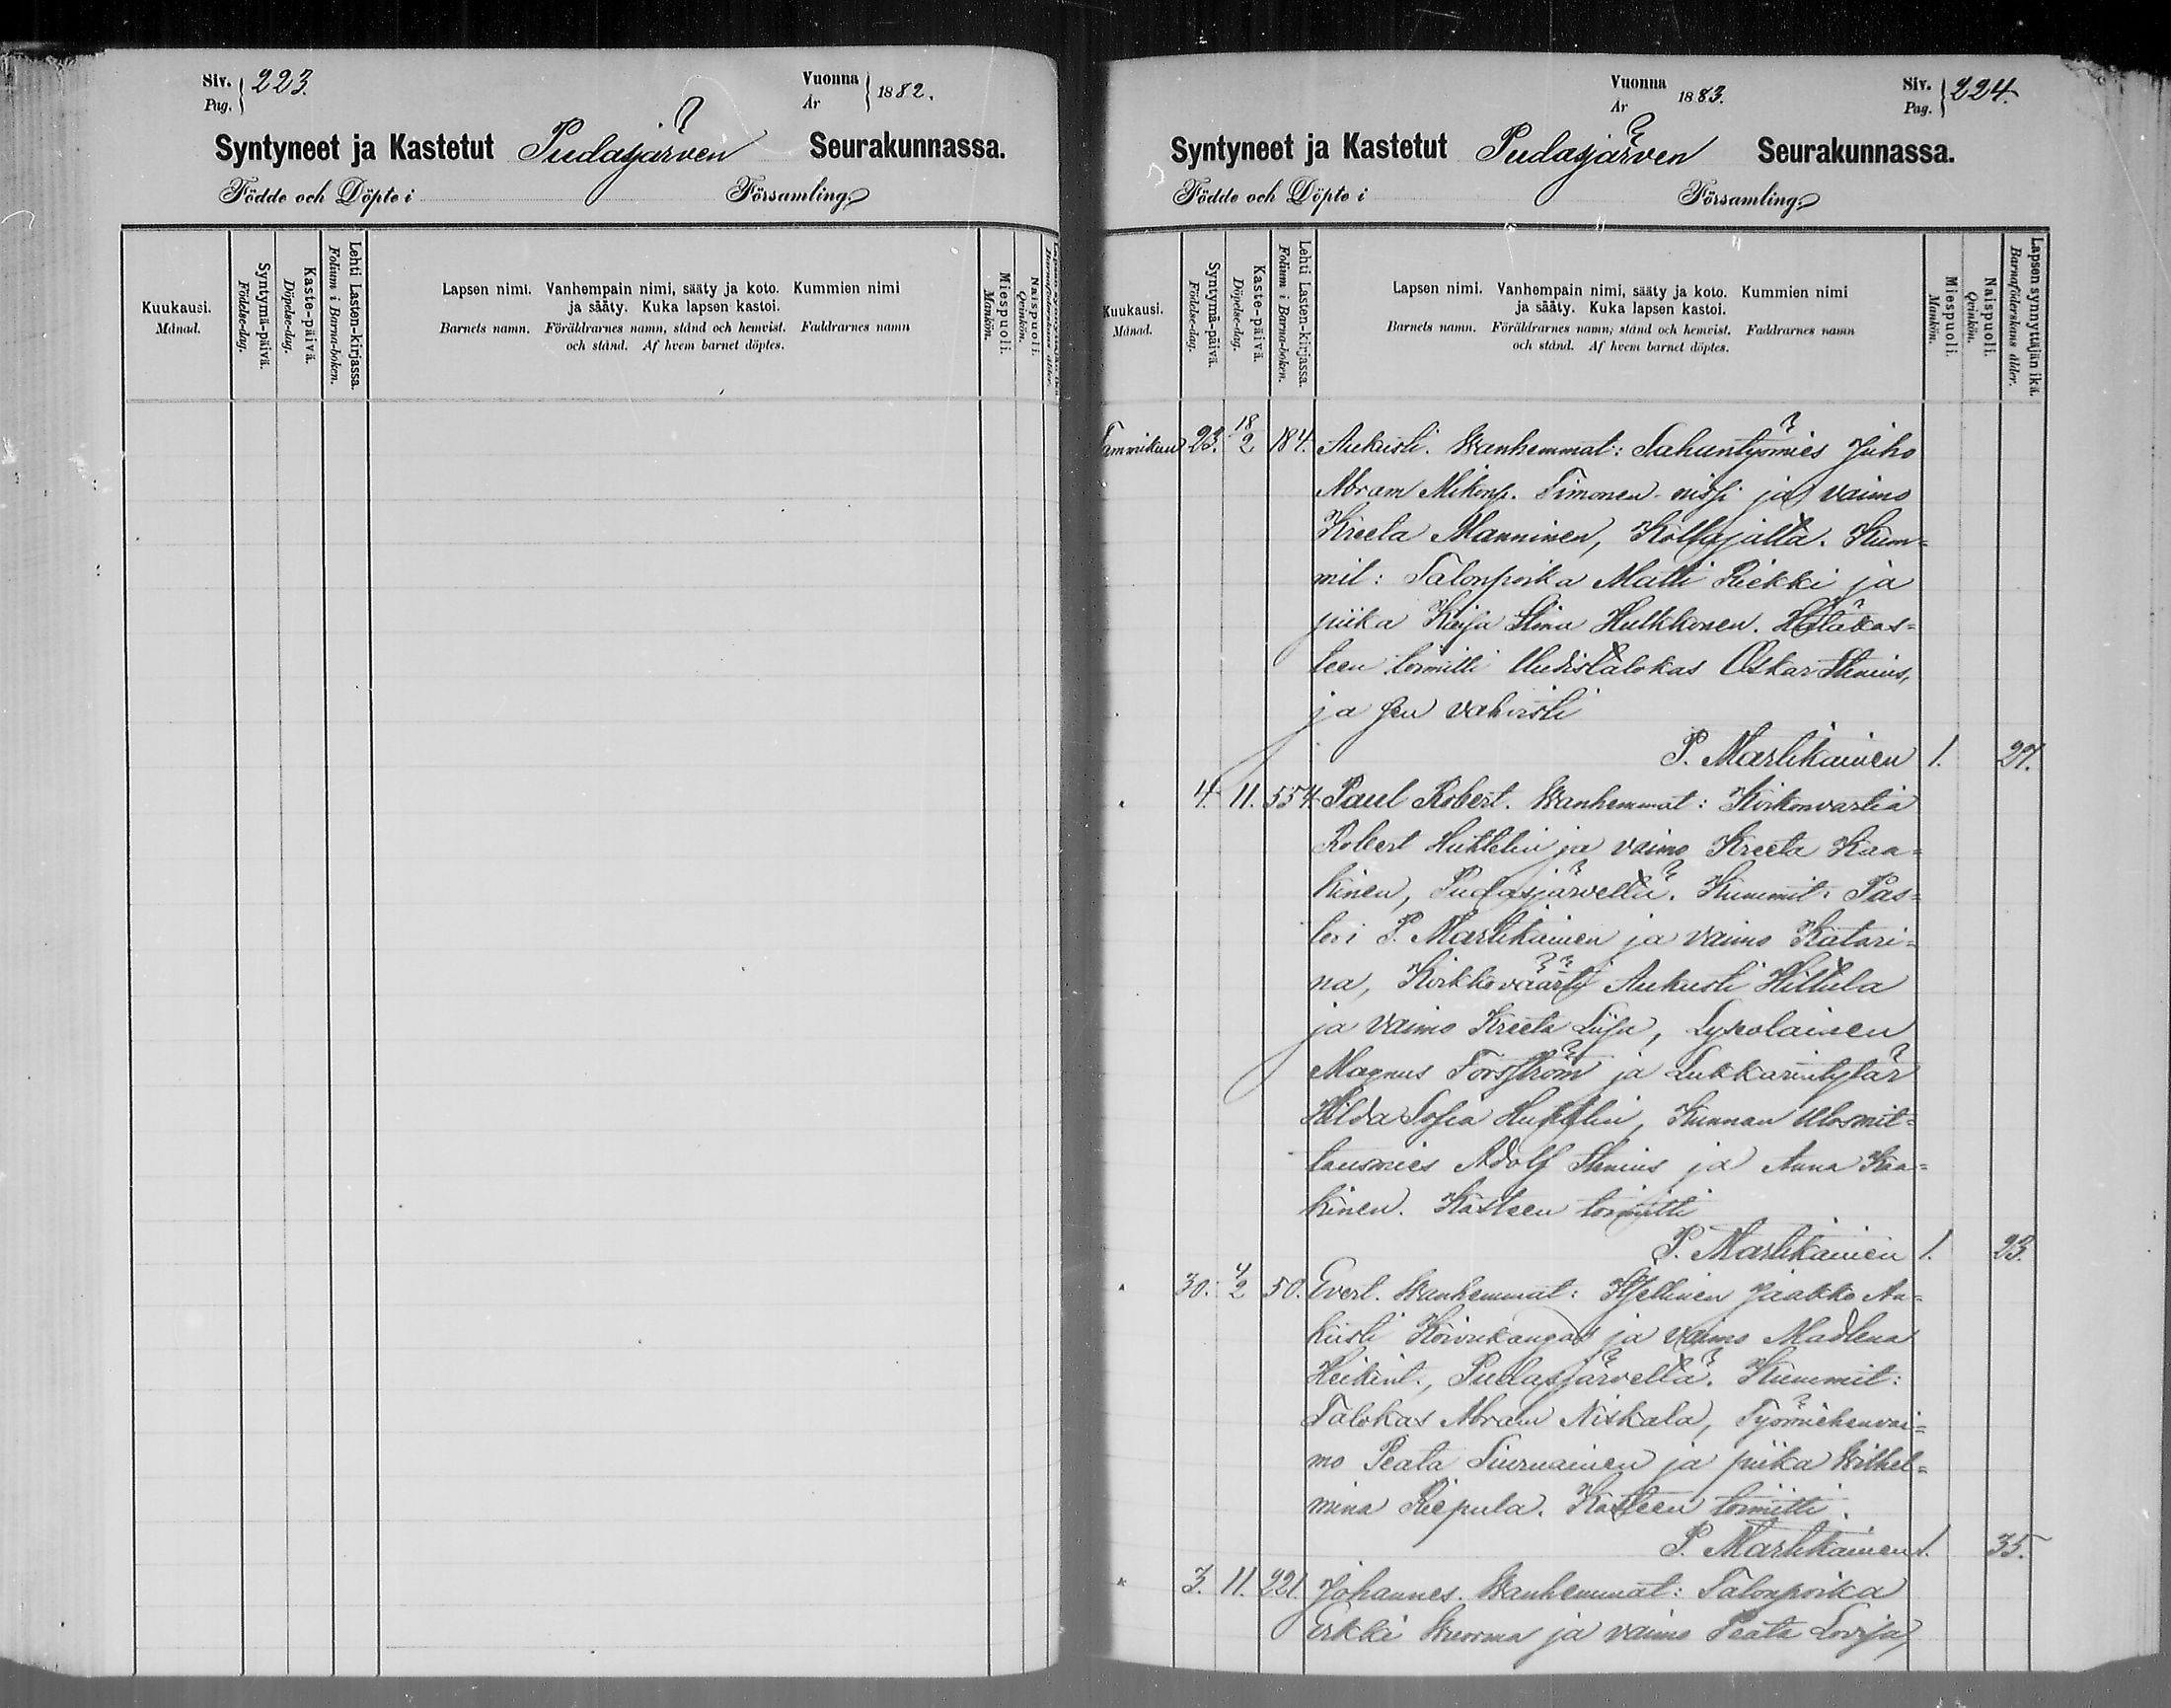 Siv. 223.
Pag.
Vuonna 1882.
År
Syntyneet ja Kastetut Pudasjärven Seurakunnassa.
Födde och Döpte i Församling.
Kuukausi.
Månad.
Syntymä-päivä.
Födelse-dag.
Kaste-päivä.
Döpelse-dag.
Lehti Lasten-kirjassa.
Folium i Barna-boken.
Lapsen nimi. Vanhempain nimi, sääty ja koto. Kummien nimi
ja sääty. Kuka lapsen kastoi.
Barnets namn. Föräldrarnes namn, stånd och hemvist. Faddrarnes namn
och stånd. Af hvem barnet döptes.
Miespuoli.
Mankön.
Naispuoli.
Qvinkön.
Vuonna 1883.
År
Siv. 224.
Pag.
Syntyneet ja Kastetut Pudasjärven Seurakunnassa.
Födde och Döpte i Församling.
Kuukausi.
Månad.
Syntymä-päivä.
Födelse-dag.
Kaste-päivä.
Döpelse-dag.
Lehti Lasten-kirjassa.
Folium i Barna-boken.
Lapsen nimi. Vanhempain nimi, sääty ja koto. Kummien nimi
ja sääty. Kuka lapsen kastoi.
Barnets namn. Föräldrarnes namn, stånd och hemvist. Faddrarnes namn
och stånd. Af hvem barnet döptes.
Miespuoli.
Mankön.
Naispuoli.
Qvinkön.
Lapsen synnyttäjän ikä.
Barnaföderskans ålder.
Tammikuu 23. 18/2 184. Aukusti. Wanhemmat: Sahantyömies Juho
Abram Mikonp. Timonen ja vaimo
Kreeta Manninen, Kollajalta. Kum-
mit: Talonpoika Matti Riekki ja
piika Kaisa Stina Hulkkonen. Hätäkas-
teen toimitti Uudistalokas Oskar Stenius,
ja sen vahvisti
P. Martikainen 1. 27.
4. 11. 554. Paul Robert. Wanhemmat: Kirkonvartia
Robert Huhtelin ja vaimo Kreeta Kaa-
kinen, Pudasjärveltä. Kummit: Pas-
tori P. Martikainen ja vaimo Katari-
na, Kirkkoväärti Aukusti Hiltula
ja vaimo Kreeta Liisa, Lyseolainen
Magnus Forsström ja Lukkarintytär
Hilda Sofia Huhtelin, Kunnan Ulosmit-
tausmies Adolf Stenius ja Anna Kaa-
kinen. Kasteen toimitti
P. Martikainen 1. 23.
30. 4/2 50. Evert. Wanhemmat: Itsellinen Jaakko Au-
kusti Koivukangas ja vaimo Madlena
Heikint., Pudasjärveltä. Kummit:
Talokas Abram Niskala, Työmiehenvai-
mo Peata Siurnainen ja piika Wilhel-
mina Riepula. Kasteen toimitti.
P. Martikainen 1. 35.
3. 11. 221. Johannes. Wanhemmat: Talonpoika
Erkki Wuorma ja vaimo Peata Lovisa,